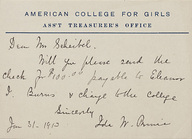 AMERICAN COLLEGE FOR GIRLS
ASS'T TREASURER'S OFFICE
Dear Mr Scheibel.
Will you please send the
check for $100.00 payable to Eleanor
I. Burns & charge to the college
Sincerely
Jan 31. 1913 Ida W.